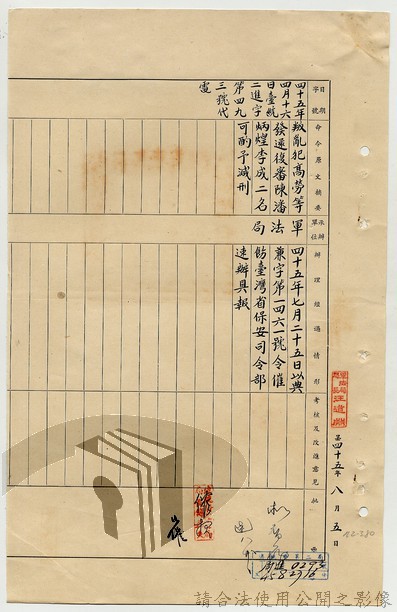 日期
字號
命令原文摘要
承辦單位
辦理經過情形
考核及改進意見
批
四十五年
四月十六
日臺統
二進字
第四九
三號代
電
叛亂犯高勞等
發還復審陳潘
炳煌李成二名
可酌予減刑
軍
法
局
四十五年七月二十五日以典
兼字第一四六一號令催
飭臺灣省保安司令部
速辦具報
汪道淵
四十五年八月五日
請合法使用公開之影像